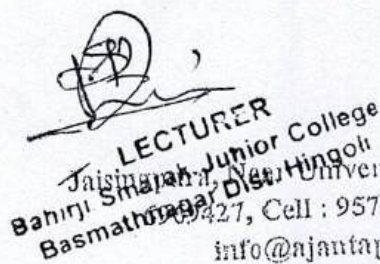 LECTURER
Bahirji Smarak Junior College
Basmathnagar Dist. Hingoli
Near Univer
427, Cell : 957
info@ajantap